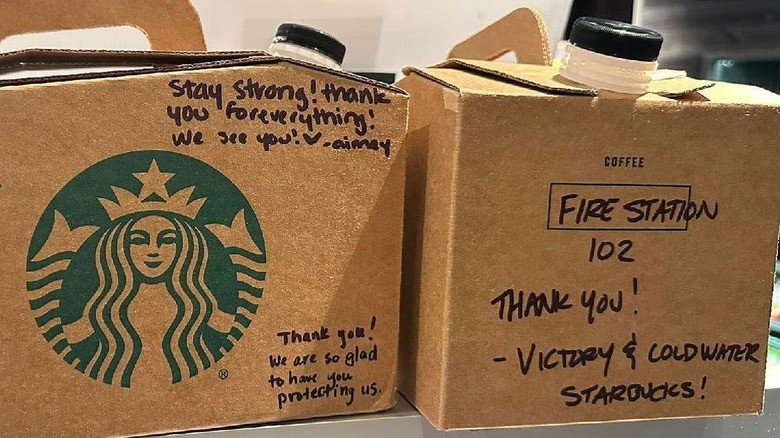 Stay Strong! thank
you foreverything!
We see you! ♥ -aimey
Thank you!
We are so glad
to have you
protecting us.
®
COFFEE
FIRE STATION
102
THANK YOU!
- VICTORY & COLDWATER
STARBUCKS!